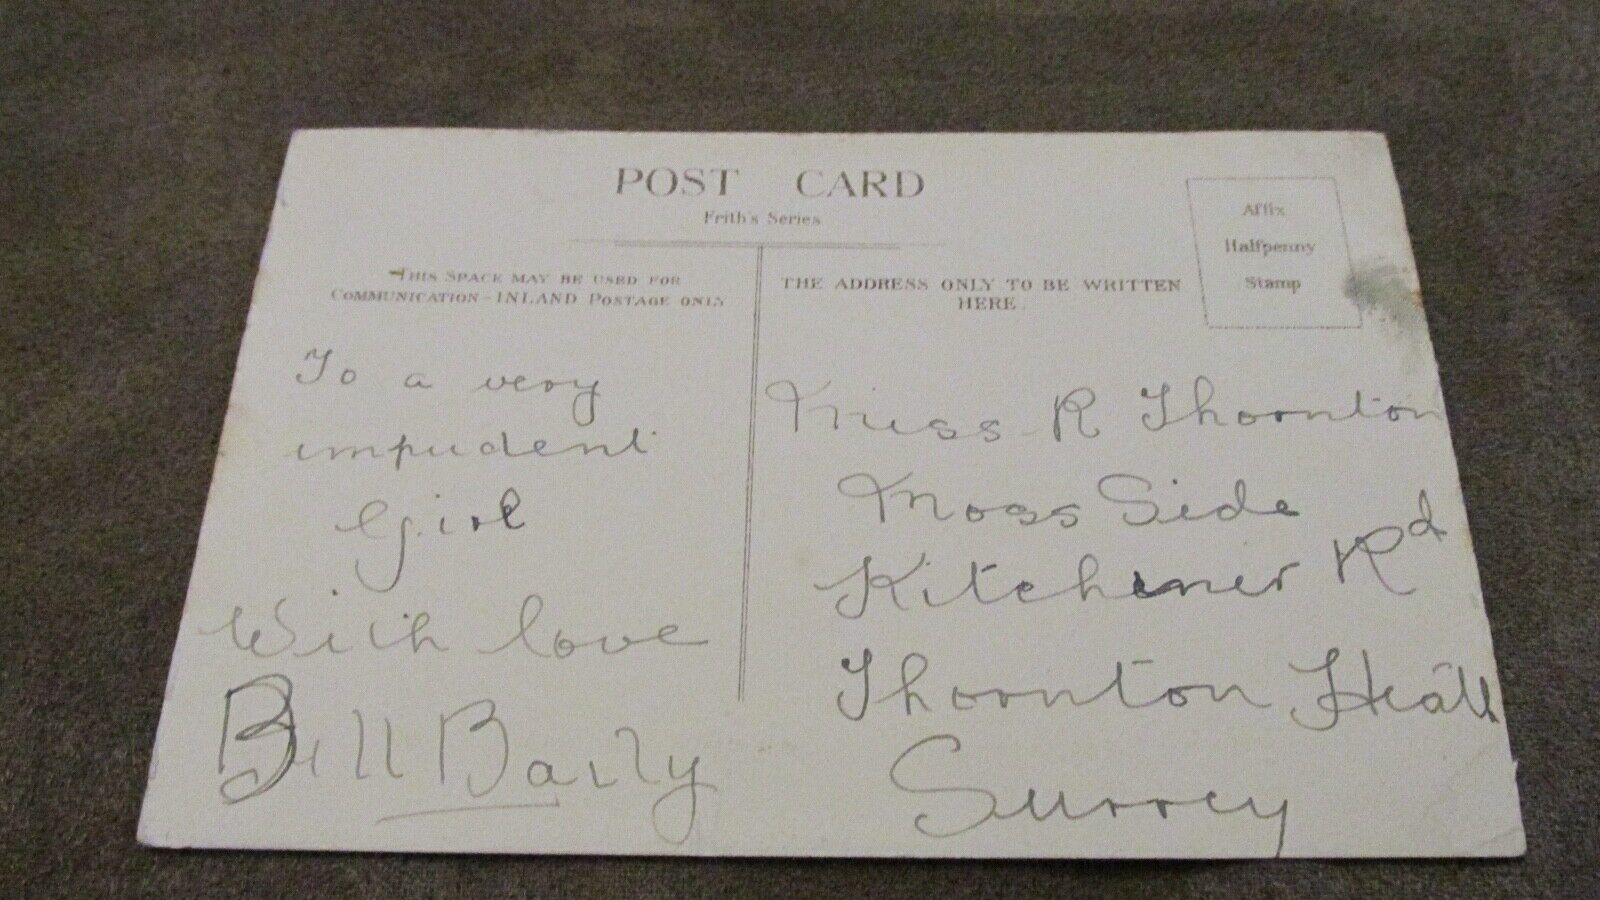 POST CARD
Frith's Series
THIS SPACE MAY BE USED FOR
COMMUNICATION - INLAND POSTAGE ONLY
THE ADDRESS ONLY TO BE WRITTEN
HERE.
Affix
Halfpenny
Stamp
To a very
impudent
Girl
With love
Bill Baily
Miss R Thornton
Moss Side
Kitchener Rd
Thornton Heath
Surrey